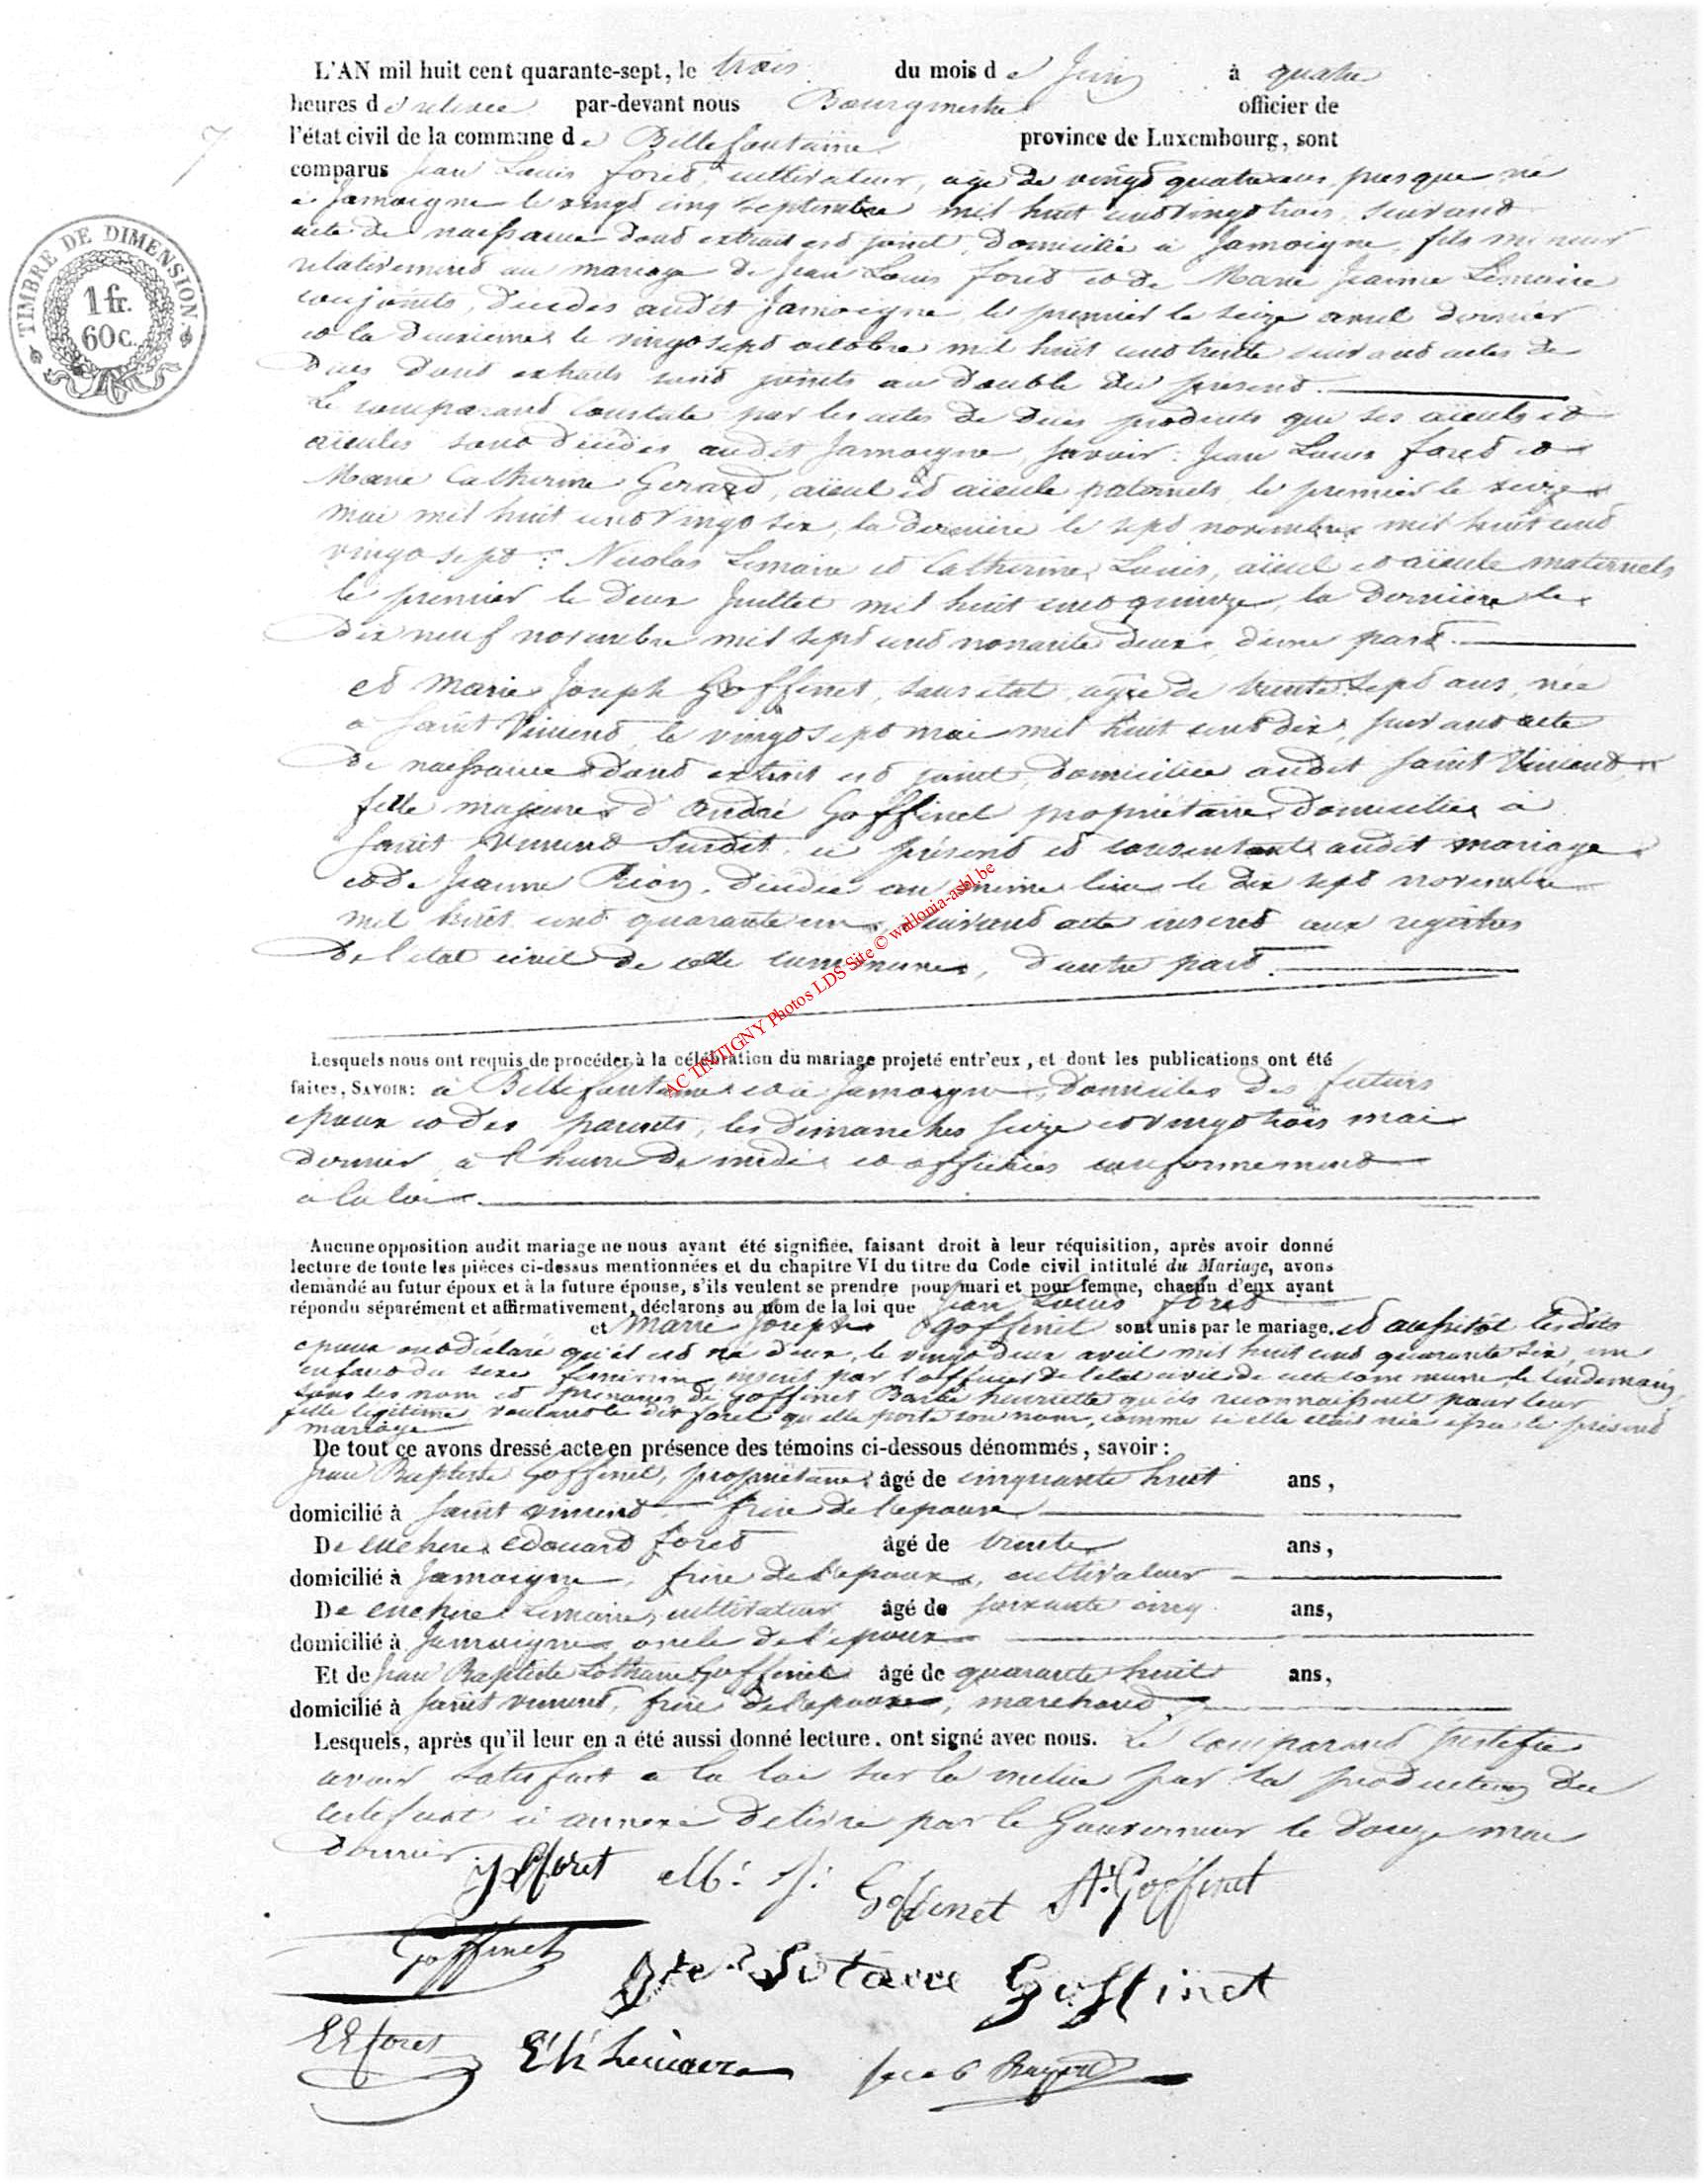 L'AN mil huit cent quarante-sept, le trois du mois de Juin à quatre
heures de relevée par-devant nous Bourgmestre officier de
l'état civil de la commune de Bellefontaine province de Luxembourg, sont
comparus Jean Louis Foret, cultivateur, agé de vingt quatre ans presque, né
à Jamoigne le vingt cinq septembre mil huit cent vingt trois, suivant
acte de naissance dont extrait est joint, domicilié à Jamoigne, fils mineur
relativement au mariage de Jean Louis Foret et de Marie Jeanne Lemaire
conjoints, décédés audit Jamoigne, le premier le seize avril dernier
et la deuxième le vingt sept octobre mil huit cent trente suivant actes de
décès dont extraits sont joints au double du présent.
Le comparant constate par les actes de décès produits que ses aïeuls et
aïeules sont décédés audit Jamoigne, savoir: Jean Louis Foret et
Marie Catherine Gerard, aïeul et aïeule paternels, le premier le seize
mai mil huit cent vingt six, la dernière le sept novembre mil huit cent
vingt sept: Nicolas Lemaire et Catherine Louis, aïeul et aïeule maternels
le premier le deux Juillet mil huit cent quinze, la dernière le
dix neuf novembre mil sept cent nonante deux, d'une part.
et Marie Joseph Goffinet, sans état, agée de trente sept ans, née
à Saint Vincent, le vingt sept mai mil huit cent dix, suivant acte
de naissance dont extrait est joint, domiciliée audit Saint Vincent
fille majeure d'André Goffinet propriétaire domicilié à
Saint Vincent susdit, ici présent et consentant audit mariage
et de Jeanne Rion, décédée au même lieu le dix sept novembre
mil huit cent quarante un, suivant acte inscrit aux registres
de l'état civil de cette commune, d'autre part.
AC TINTIGNY Photos LDS Site © wallonia-asbl.be
Lesquels nous ont requis de procéder à la célébration du mariage projeté entr'eux, et dont les publications ont été
faites, SAVOIR: à Bellefontaine et à Jamoigne, domiciles des futurs
epoux et des parents, les dimanches seize et vingt trois mai
dernier, à l'heure de midi et affichées conformement
à la loi.
Aucune opposition audit mariage ne nous ayant été signifiée, faisant droit à leur réquisition, après avoir donné
lecture de toute les pièces ci-dessus mentionnées et du chapitre VI du titre du Code civil intitulé du Mariage, avons
demandé au futur époux et à la future épouse, s'ils veulent se prendre pour mari et pour femme, chacun d'eux ayant
répondu séparément et affirmativement, déclarons au nom de la loi que Jean Louis Foret
et Marie Joseph Goffinet sont unis par le mariage. et aussitôt lesdits
epoux ont déclaré qu'il est né d'eux, le vingt deux avril mil huit cent quarante six, un
enfant du sexe feminin, inscrit par l'officier de l'état civil de cette commune, le lendemain,
sous les nom et prenoms de Goffinet Barbe henriette qu'ils reconnaissent pour leur
fille legitime, voulant le dit foret qu'elle porte son nom, comme si elle était née le présent
mariage
De tout ce avons dressé acte en présence des témoins ci-dessous dénommés, savoir:
Jean Baptiste Goffinet, propriétaire âgé de cinquante huit ans,
domicilié à Saint Vincent frère de l'epouse
De edouard Foret âgé de trente ans,
domicilié à Jamoigne, frère de l'epoux, cultivateur
De Lemaire, cultivateur âgé de soixante cinq ans,
domicilié à Jamoigne, oncle de l'epoux
Et de Jean Baptiste Goffinet âgé de quarante huit ans,
domicilié à Saint Vincent, frère de l'epouse, marchand
Lesquels, après qu'il leur en a été aussi donné lecture, ont signé avec nous. Le comparant justifie
avoir satisfait à la loi sur la milice par la production du
certificat ci annexé delivré par le Gouverneur le douze mai
dernier.
foret M: J: Goffinet A. Goffinet
Goffinet
Goffinet
foret Lemaire